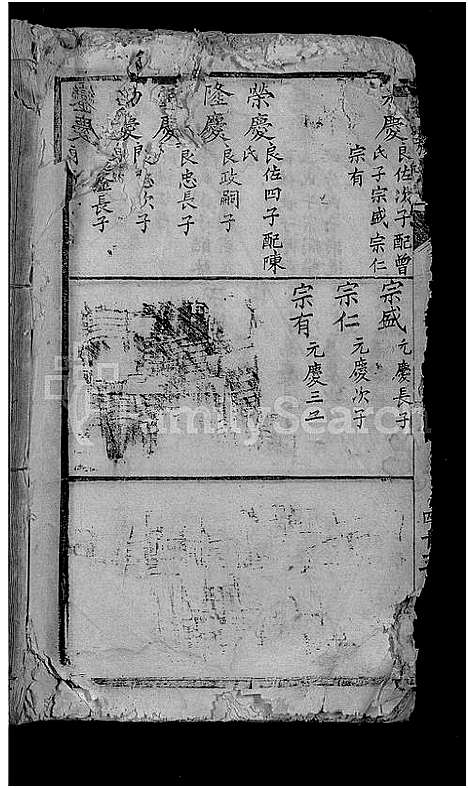 元慶 良佐次子配曾
氏子宗盛宗仁
宗有
榮慶 良佐四子配陳
氏
隆慶 良政嗣子
慶 良忠長子
慶 良忠次子
慶 長子
宗盛 元慶長子
宗仁 元慶次子
宗有 元慶三子
FamilySearch